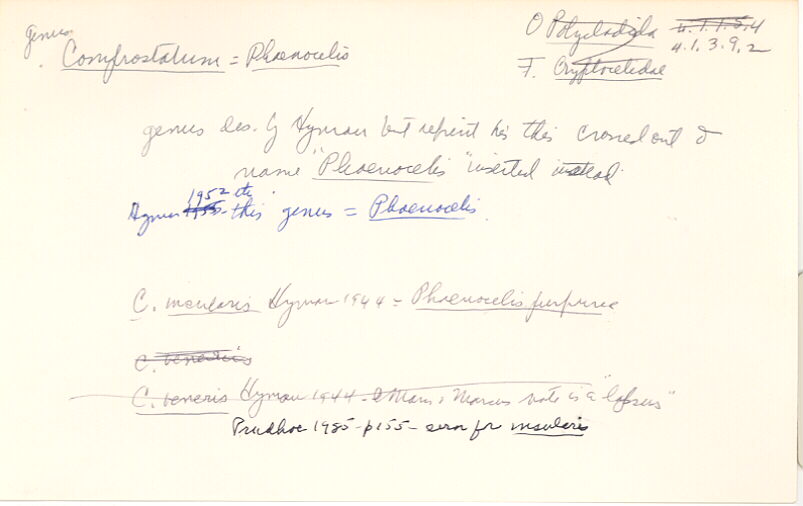 genus
Comprostatum = Phaenocelis
O Polycladida 4.1.1.5.4
4.1.3.9.2
F. Cryptocelidae
genus des. by Hyman but reprint has this crossed out &
name "Phaenocelis" inserted instead
Hyman 1955 1952 this genus = Phaenocelis.
C. insularis Hyman 1944 = Phaenocelis purpurea
C. veneris
C. veneris Hyman 1944 - Marcus note is a "lapsus"
Prudhoe 1985 - p155 - error for insularis